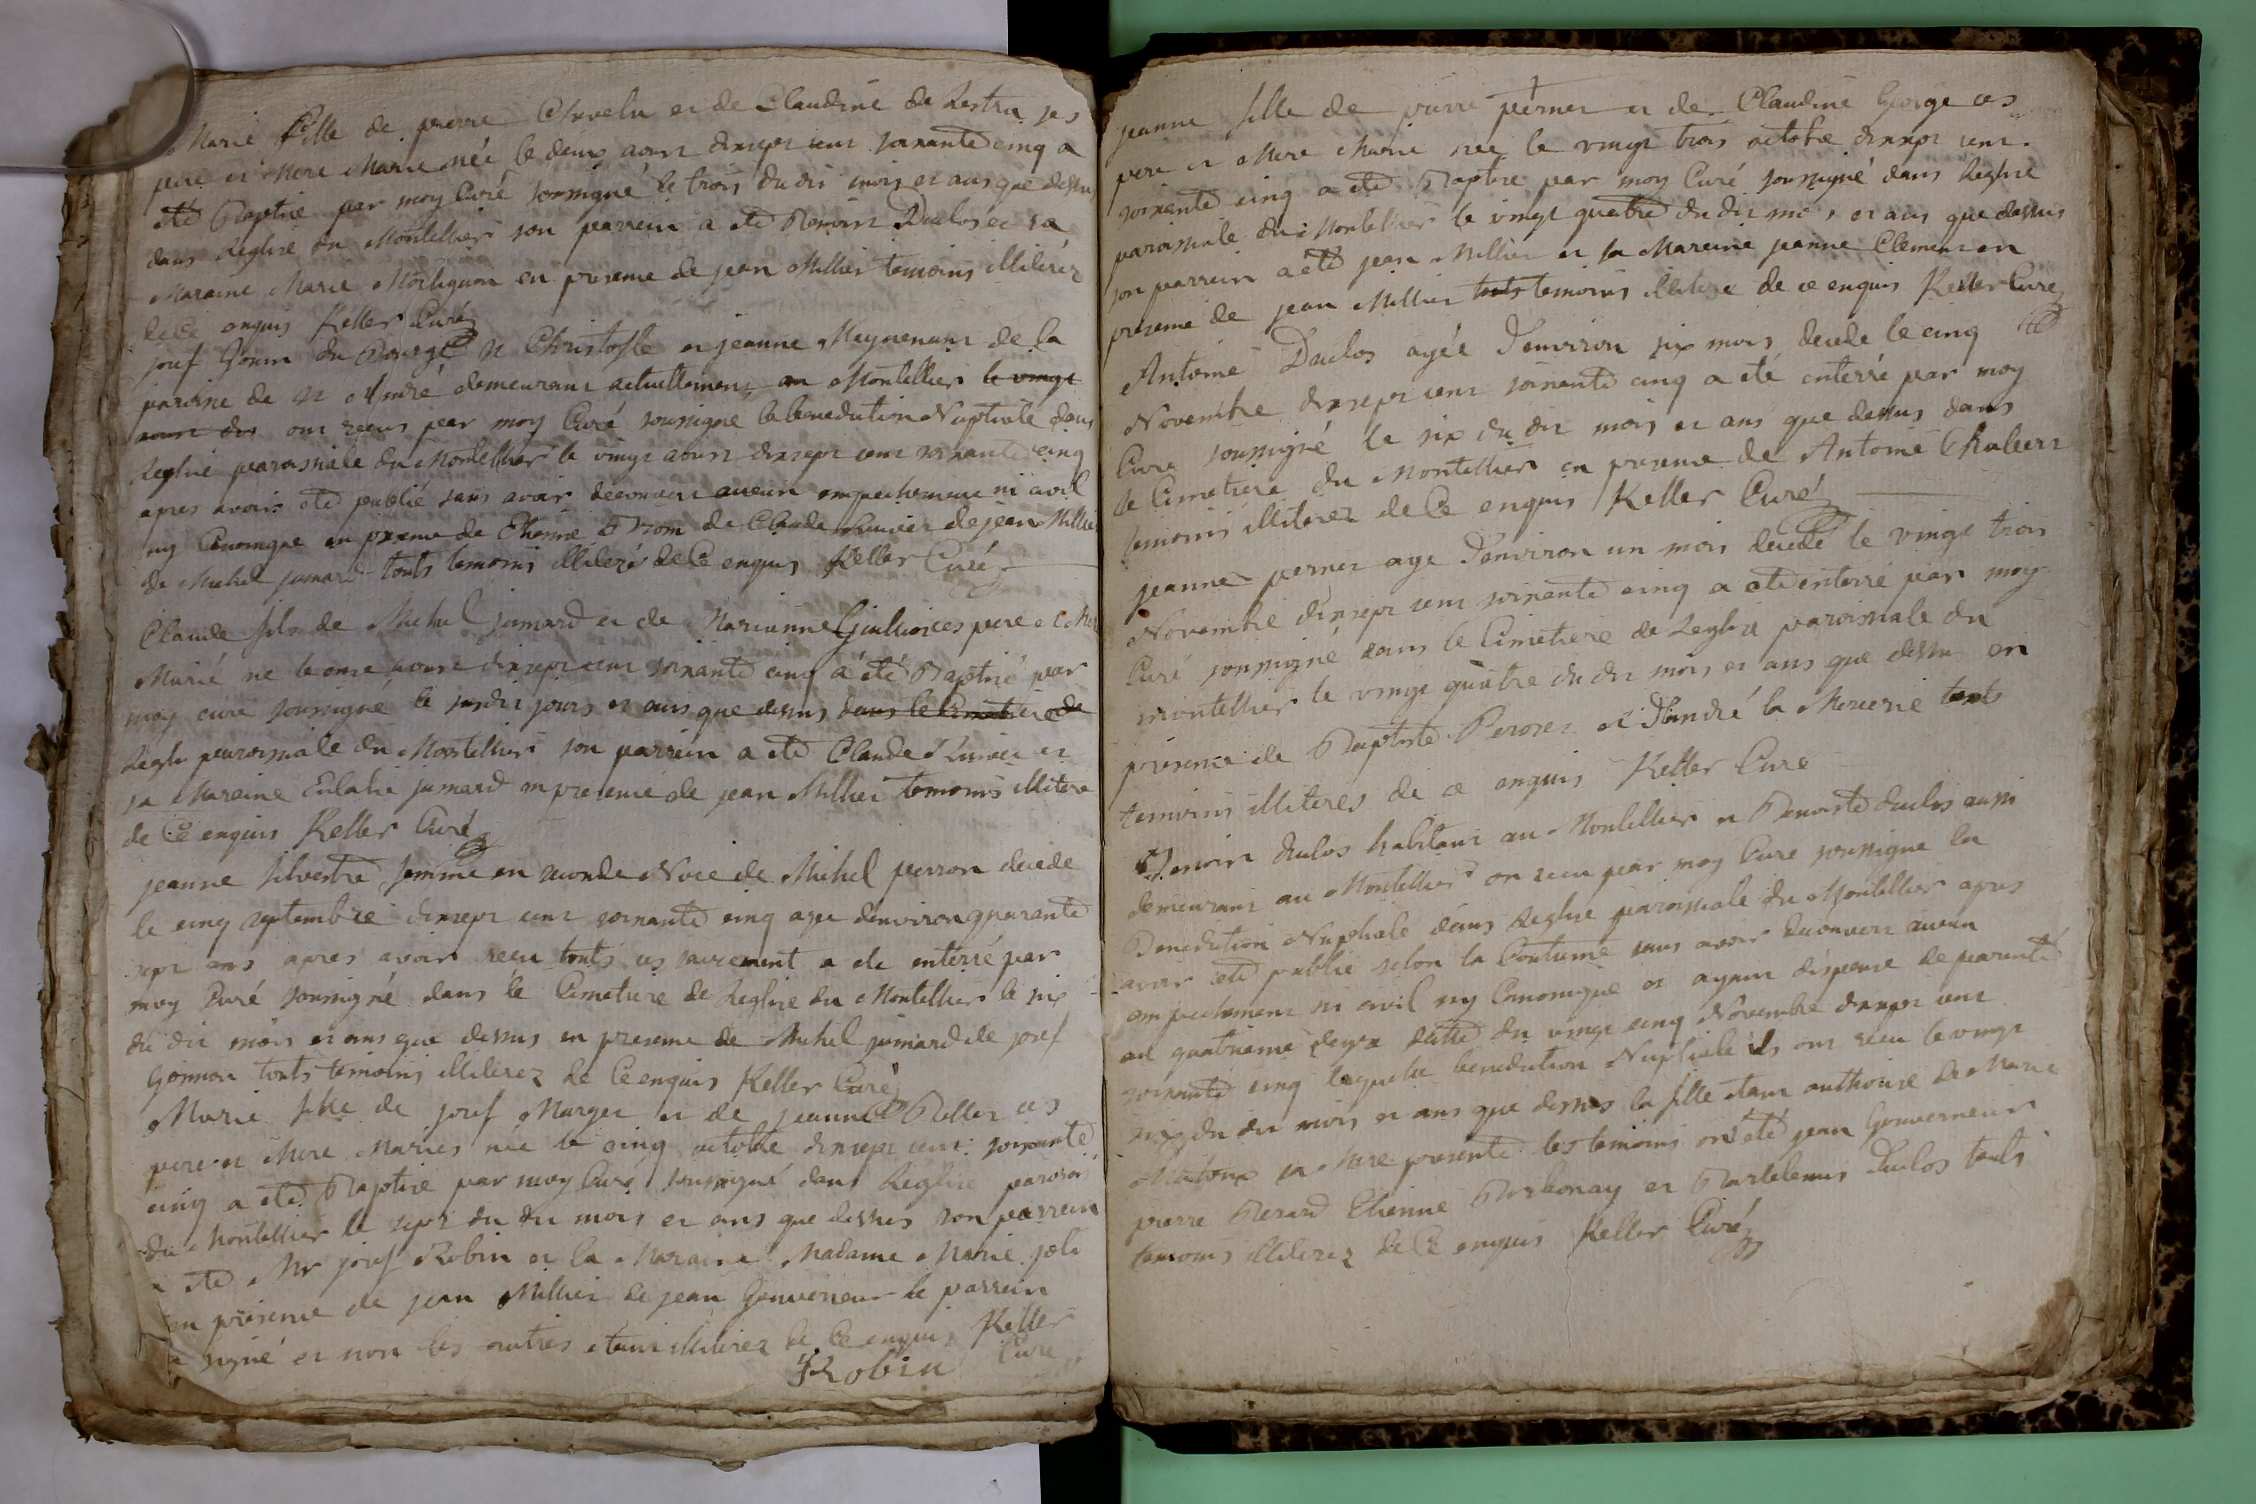 Marie fille de pierre Chevelu et de Claudine de Lestra ses
pere et Mere Marie née le deux aoust dixsept cent soixante cinq a
été Baptisé par moy Curé soussigné le trois du dit mois et ans que dessus
dans Leglise du Montellier son parrein a eté Benoit Duclos et sa
Maraine Marie Morliguon en presence de jean Millier temoins illiterez
de Ce enquis Keller Curé
josef Gonin du Bourg St Christofle et jeanne Meynenant de la
paroisse de St André demeurant actuellement au Montellier le vingt
aoust dis ont recus par moy Curé soussigné la benediction Nuptiale dans
Leglise paroissiale du Montellier le vingt aoust dixsept cent soixante cinq
apres avoir eté publié sans avoir decouvert aucun empechement ni civil
ny Canonique en presence de Etienne Trom de Claude Luivier de jean Millier
de Michel jumard touts temoins illiteré de Ce enquis Keller Curé
Claude fils de Michel jumard et de Marianne Guillion ces pere et Mere
Marié ne le onze aoust dixsept cent soixante cinq a été Baptisé par
moy curé soussigné le susdit jours et ans que dessus dans le Cimetiere de
Leglise paroissiale du Montellier son parrein a eté Claude Luivier et
sa Mareine Eulalie jumard en presence de jean Millier temoins illitere
de Ce enquis Keller Curé
jeanne silvestre femme en seconde Noce de Michel perron decede
le cinq septembre dixsept cent soixante cinq agee denviron quarante
sept ans apres avoir recu touts ces sacrement a ete enterré par
moy Curé soussigné dans le Cimetiere de Leglise du Montellier le six
du dit mois et ans que dessus en presence de Michel jumard de josef
Gonnon touts temoins illiterez de Ce enquis Keller Curé
Marie fille de josef Marger et de jeanne Pellet ces
pere et Mere Mariés née le cinq octobre dixsept cent soixante
cinq a eté Baptise par moy Curé soussigné dans Leglise parois
du Montellier le sept du dit mois et ans que dessus son parrein
a eté Mr josef Robin et la Maraine Madame Marie joli
en presence de jean Millier de jean Gouverneur le parrein
a signé et non les autres etant illiterez de Ce enquis Keller
Robin Curé
jeanne fille de pierre perner et de Claudine George ces
pere et Mere Marie nee le vingt trois octobre dixsept cent
soixante cinq a eté Baptise par moy Curé soussigné dans Leglise
paroissiale du Montellier le vingt quatre du dit mois et ans que dessus
son parrein a eté jean Millier et sa Mareine jeanne Clement en
presence de jean Millier touts temoins illitere de ce enquis Keller Curé
Antoine Duclos agée d'environ six mois decede le cinq
Novembre dixsept cent soixante cinq a eté enterré par moy
Curé soussigné le six du dit mois et ans que dessus dans
le Cimetiere du Montellier en presence de Antoine Chabert
temoins illiterez de Ce enquis Keller Curé
jeanne perner age d'environ un mois decedé le vingt trois
Novembre dixsept cent soixante cinq a eté enterré par moy
Curé soussigné dans le Cimetiere de Leglise paroissiale du
montellier le vingt quatre du dit mois et ans que dessus en
presence de Baptiste Perosez et d'André la Mercerie touts
temoins illiterés de ce enquis Keller Curé
Benoit duclos habitant au Montellier et Benoite duclos aussi
demeurant au Montellier on recu par moy Curé soussigne la
Benediction Nuptiale dans Leglise paroissiale du Montellier apres
avoir eté publié selon la Coutume sans avoir decouvert aucun
empechement ni civil ny Canonique et ayant dispense de parenté
au quatrieme degré datté du vingt cinq Novembre dixsept cent
soixante cinq laquelle benediction Nuptiale ils ont recu le vingt
six du dit mois et ans que dessus la fille etant authorisé de Marie
sa Mere presente les temoins ont eté jean Gouverneur
pierre Berard Etienne Borbonay et Bartelemis Duclos touts
temoins illiterez de Ce enquis Keller Curé